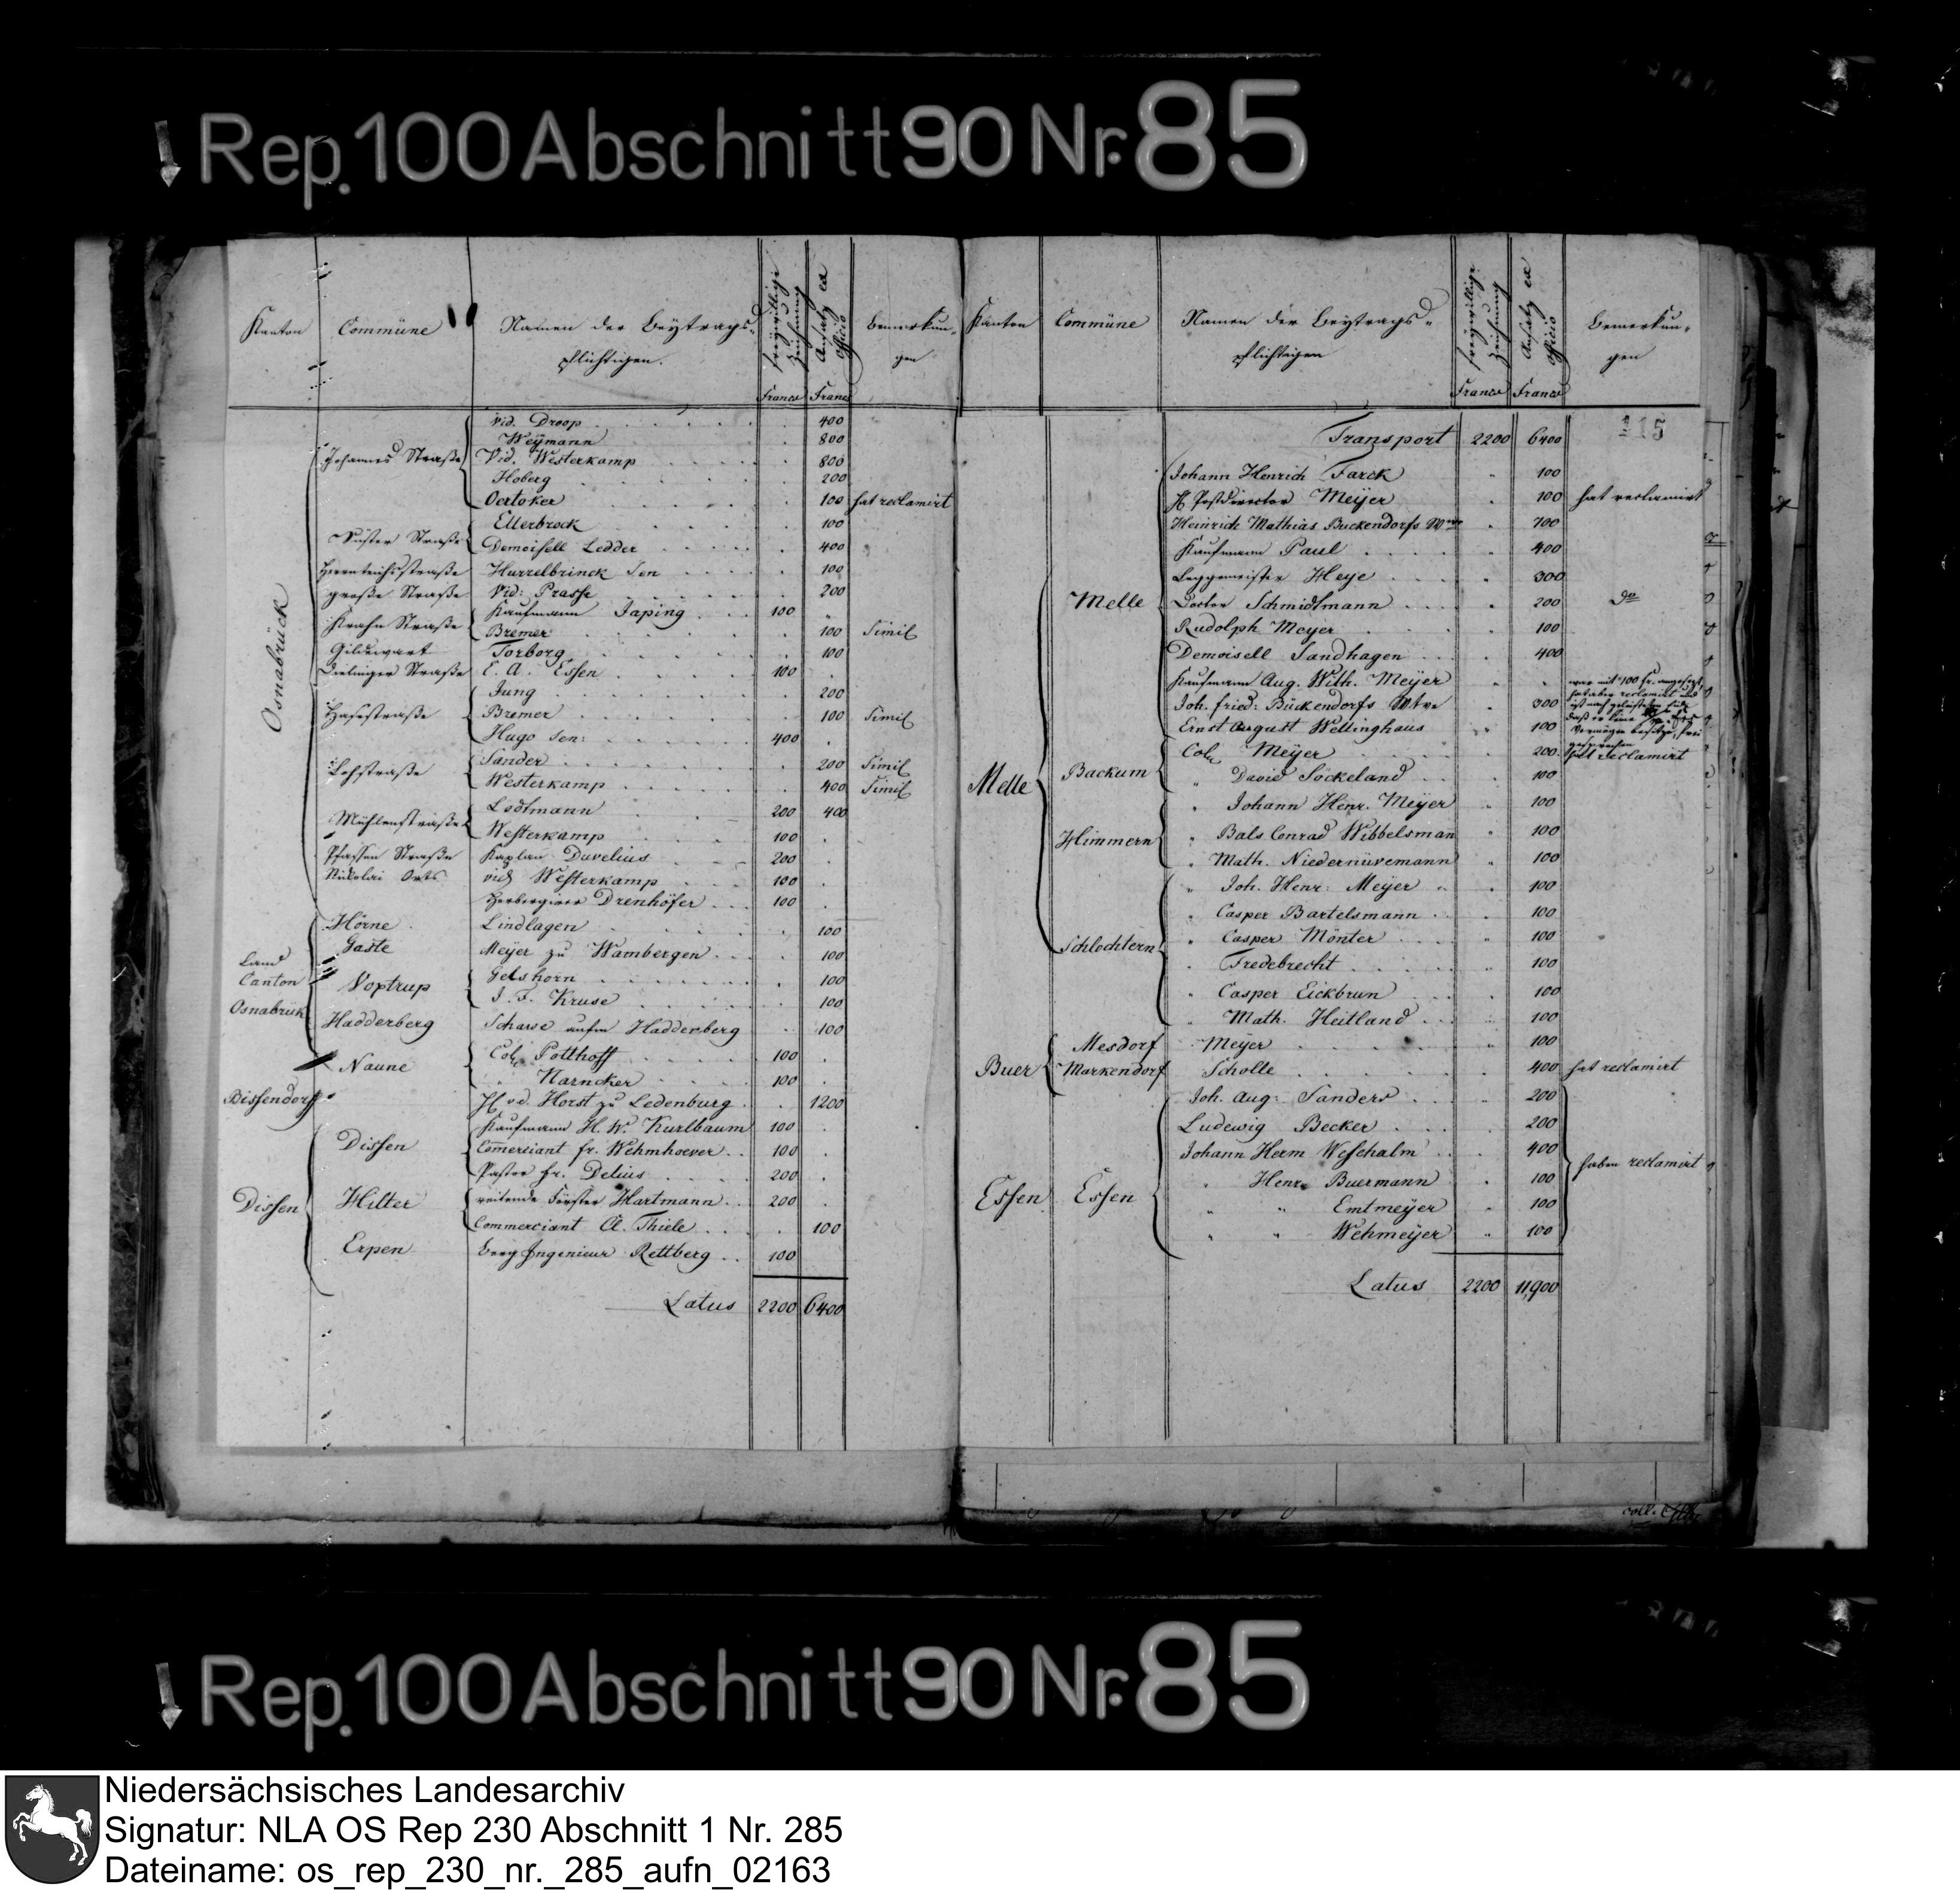 Rep. 100 Abschnitt 90 Nr. 85
Kanton Commüne Namen der Beytrags- freywillige Zeichnung Ansatz ex officio Bemerkun-
pflichtigen. gen
Francs Francs
Osnabrück
Johannes Straße Vid. Droop 400
Weÿmann 800
Vid. Westerkamp 800
Hoberg 200
Oertoker 100 hat reclamirt
Süster Straße Ellerbrock 100
Demoisell Ledder 400
Herrnteichsstraße Hurrelbrinck Sen 100
große Straße Vid: Prasse 200
Krahn Straße Kaufmann Japing 100
Bremer 100 Simil
Gildewart Torborg 100
Dielinger Straße E. A. Essen 100
Hasestraße Jung 200
Bremer 100 Simil
Hugo sen: 400
Lohstraße Sander 200 Simil
Westerkamp 400 Simil
Mühlenstraße Lodtmann 200 400
Westerkamp 100
Pfaffen Straße Kaplan Duvelius 200
Nicolai Orts vid Westerkamp 100
Herbergirer Drenhöfer 100
Land Canton Osnabrück
Hörne Lindlagen 100
Gaste Meÿer zu Wambergen 100
Voxtrup Gelshorn 100
J. F. Kruse 100
Hadderberg Scharse aufm Hadderberg 100
Bissendorf
Naune Col. Potthoff 100
" Narncker 100
H. v. d. Horst zu Ledenburg 1200
Dissen
Dissen Kaufmann H. W. Kurlbaum 100
Com̄erciant fr. Wehmhoever 100
Pastor fr. Delius 200
Hilter reitende Förster Hartmann 200
Commerciant A. Thiele 100
Erpen Berg Ingenieur Rettberg 100
Latus 2200 6400
Kanton Commüne Namen der Beytrags- freywillige Zeichnung Ansatz ex officio Bemerkun-
pflichtigen gen
Francs Francs
115
Transport 2200 6400
Melle
Melle
Johann Henrich Farck 100
H. Postdirector Meÿer 100 hat reclamirt
Heinrich Mathias Buckendorfs Wwe 100
Kaufmann Paul 400
Leggemeister Heye 300
Doctor Schmidtmann 200 do
Rudolph Meyer 100
Demoisell Sandhagen 400
Kaufmann Aug. Wilh. Meÿer war mit 100 fr. angesezt,
hat aber reclamirt und
ist nach geleistetem Eide
daß er keine
Vermögen besitze, frei
gesprochen
Joh. fried: Bückendorfs Wtwe 300
Ernst August Wellinghaus 100
Backum Col. Meÿer 200 hat reclamirt
" David Söckeland 100
Himmern " Johann Henr. Meÿer 100
" Bals Conrad Wibbelsman 100
" Math. Niedernüvemann 100
Schlochtern " Joh. Henr: Meÿer 100
" Casper Bartelsmann 100
" Casper Mönter 100
" Fredebrecht 100
" Casper Eickbrun 100
" Math. Heitland 100
Buer
Mesdorf Meyer 100
Markendorf Scholle 400 hat reclamirt
Essen
Essen
Joh. Aug: Sanders 200
Ludewig Becker 200
Johann Herm Weschalm 400
" Henr. Buermann 100
" " Emtmeÿer 100
" " Wehmeÿer 100
haben reclamirt
Latus 2200 11,900
coll.
Rep. 100 Abschnitt 90 Nr. 85
Niedersächsisches Landesarchiv
Signatur: NLA OS Rep 230 Abschnitt 1 Nr. 285
Dateiname: os_rep_230_nr._285_aufn_02163